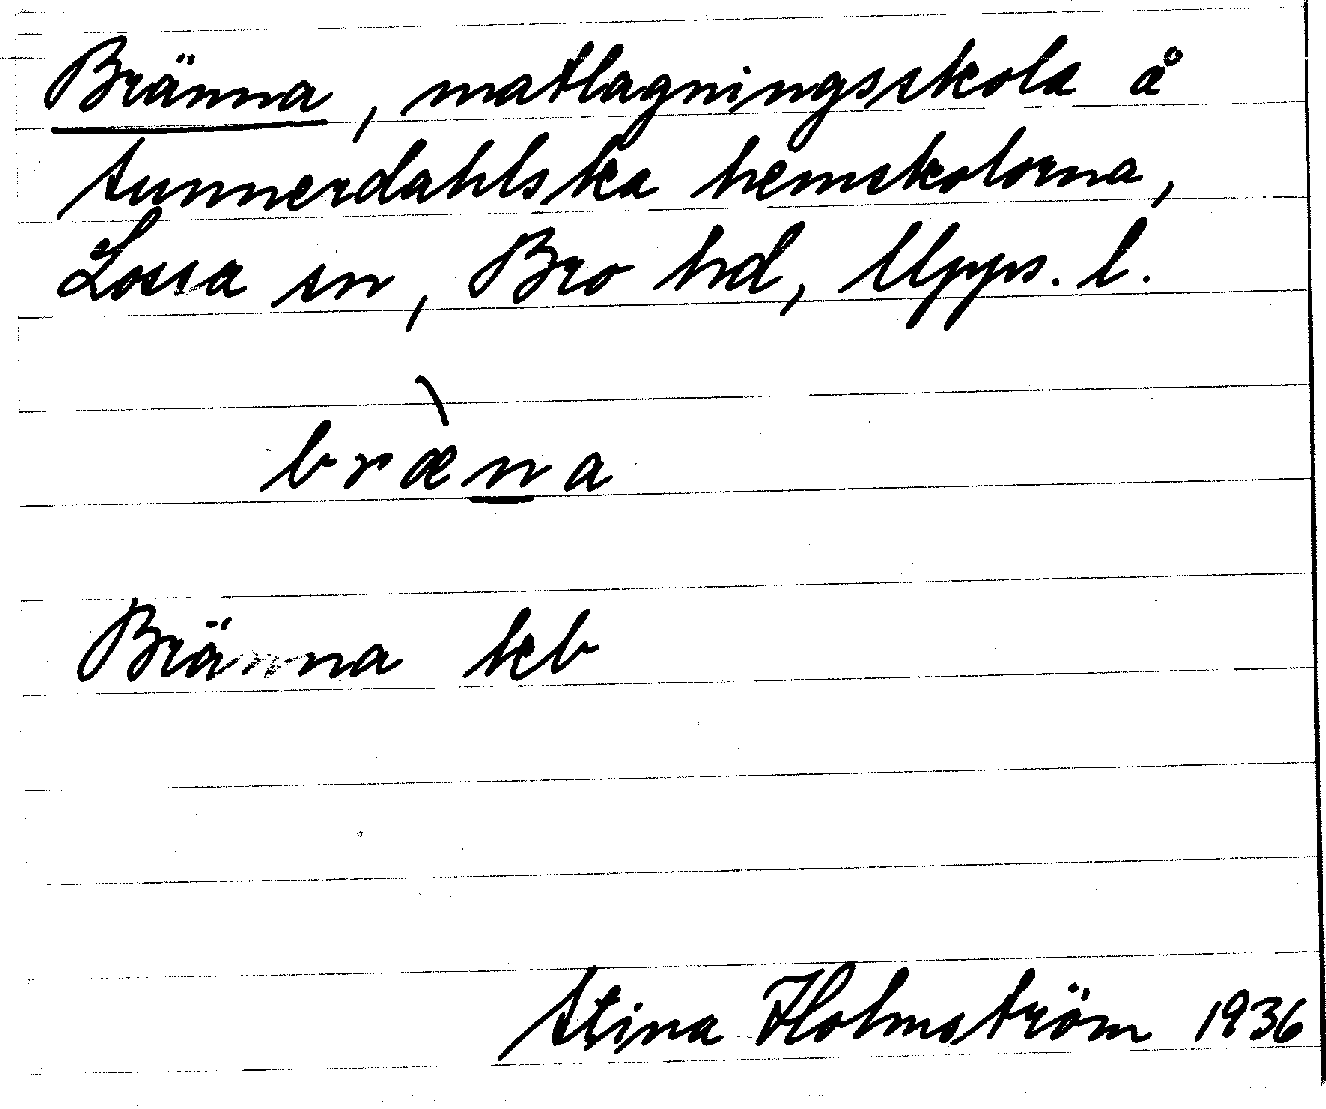 Bränna, matlagningsskola å
Sunnerdahlska hemskolorna,
Lossa sn, Bro hd, Upps. l.
bræ̀n̲a
Bränna kb
Stina Holmström 1936